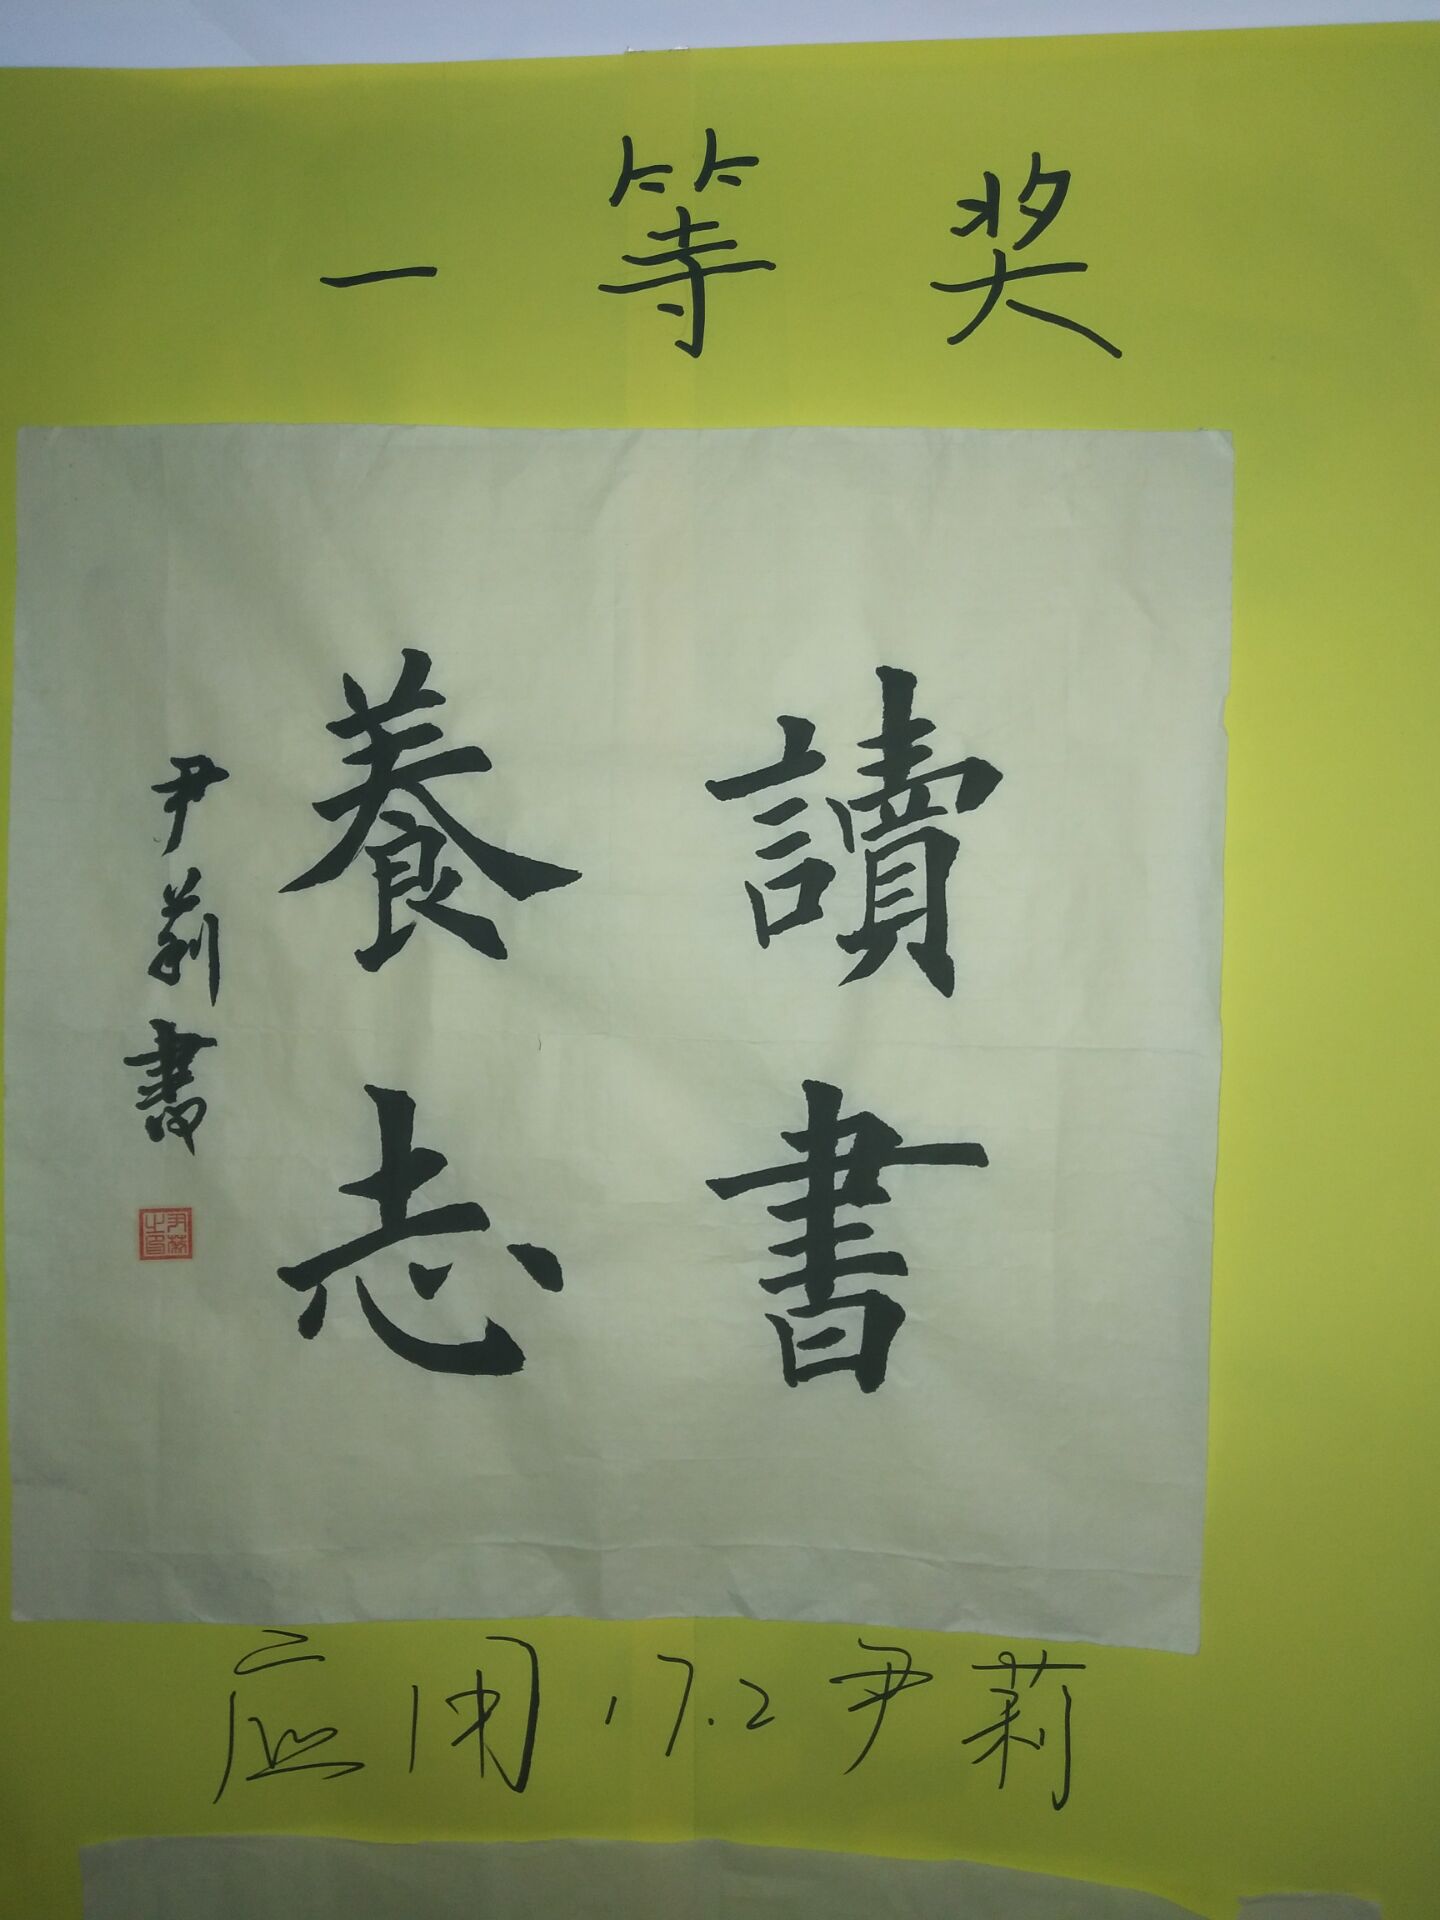 一等奖
讀書
養志
尹莉書
尹莉之印
应用17.2尹莉